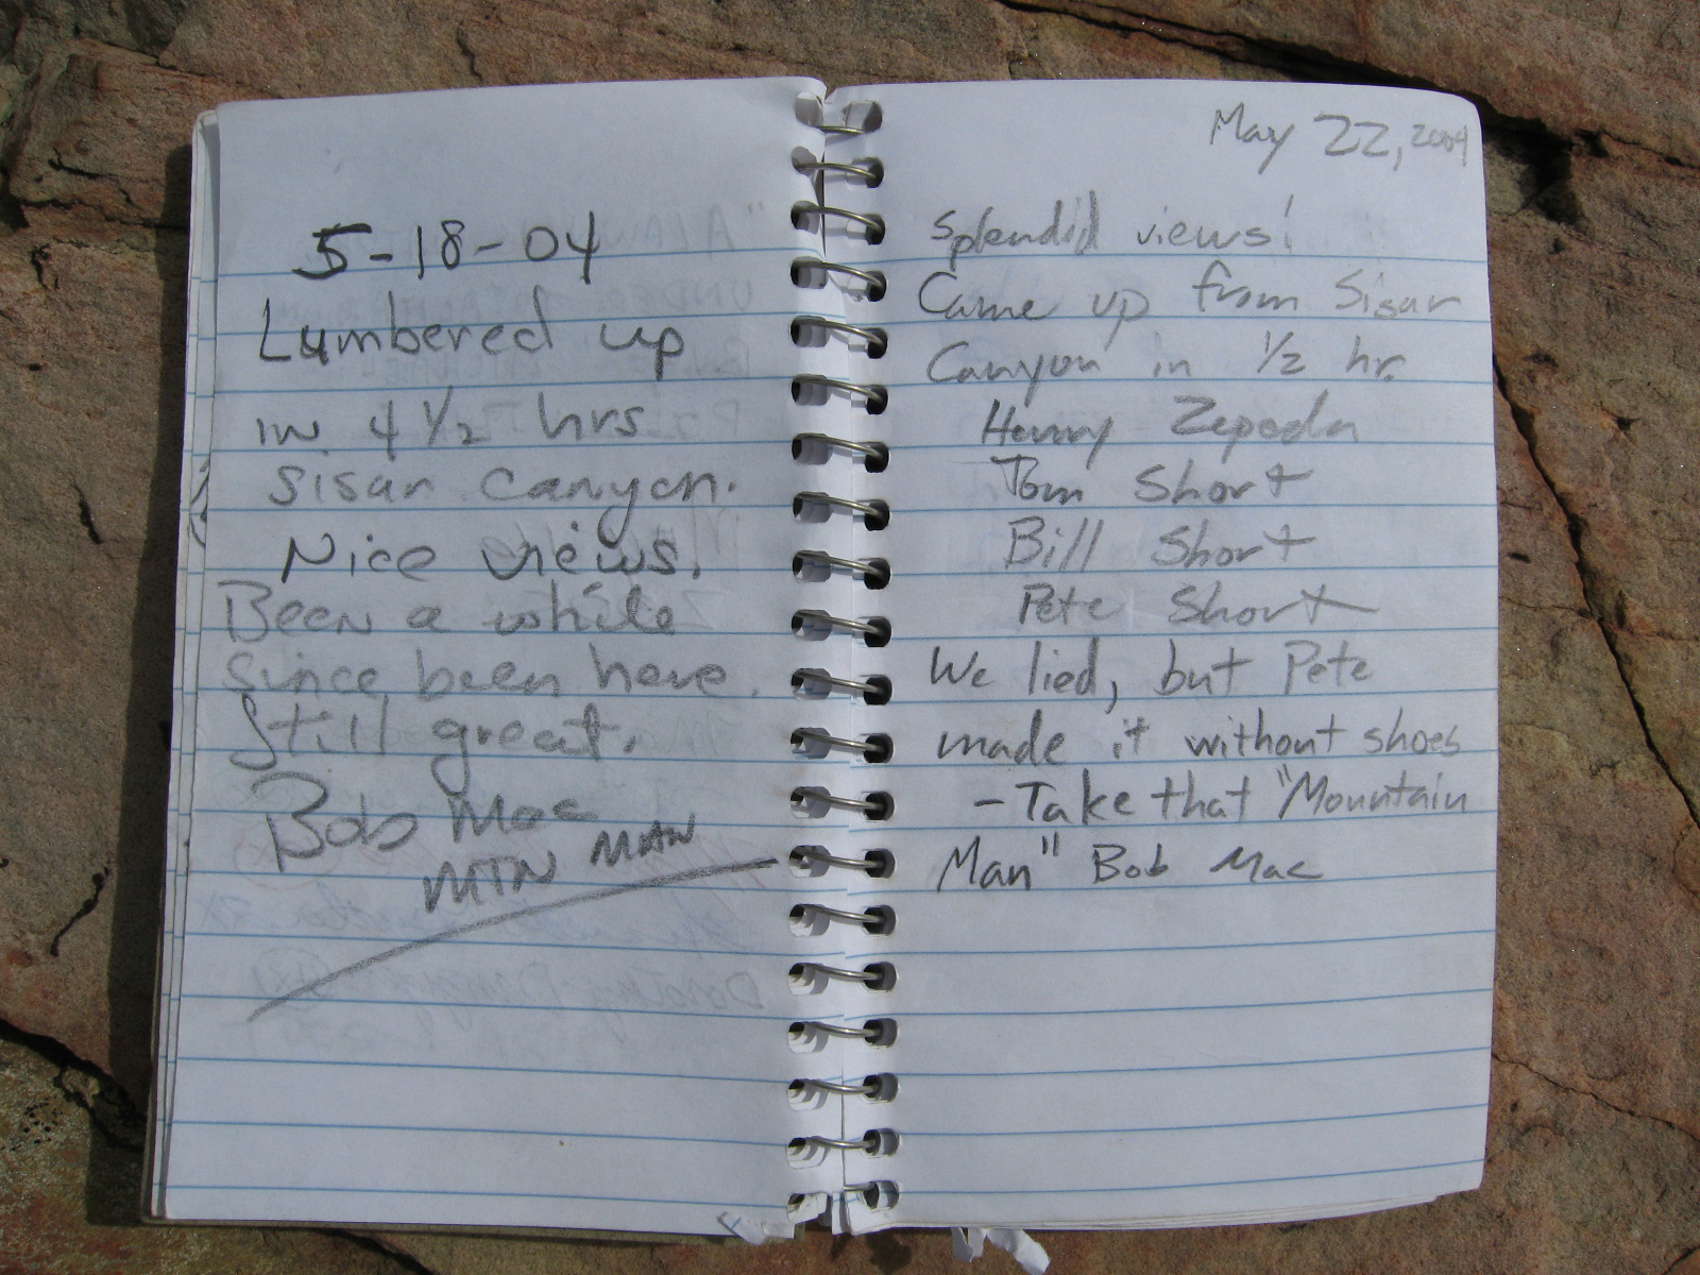 5-18-04
Lumbered up
in 4 1/2 hrs
Sisar Canyon.
Nice views.
Been a while
since been here.
Still great.
Bob Mac
MTN MAN
May 22, 2004
Splendid views!
Came up from Sisar
Canyon in 1/2 hr.
Henry Zepeda
Tom Short
Bill Short
Pete Short
We lied, but Pete
made it without shoes
- Take that "Mountain
Man" Bob Mac